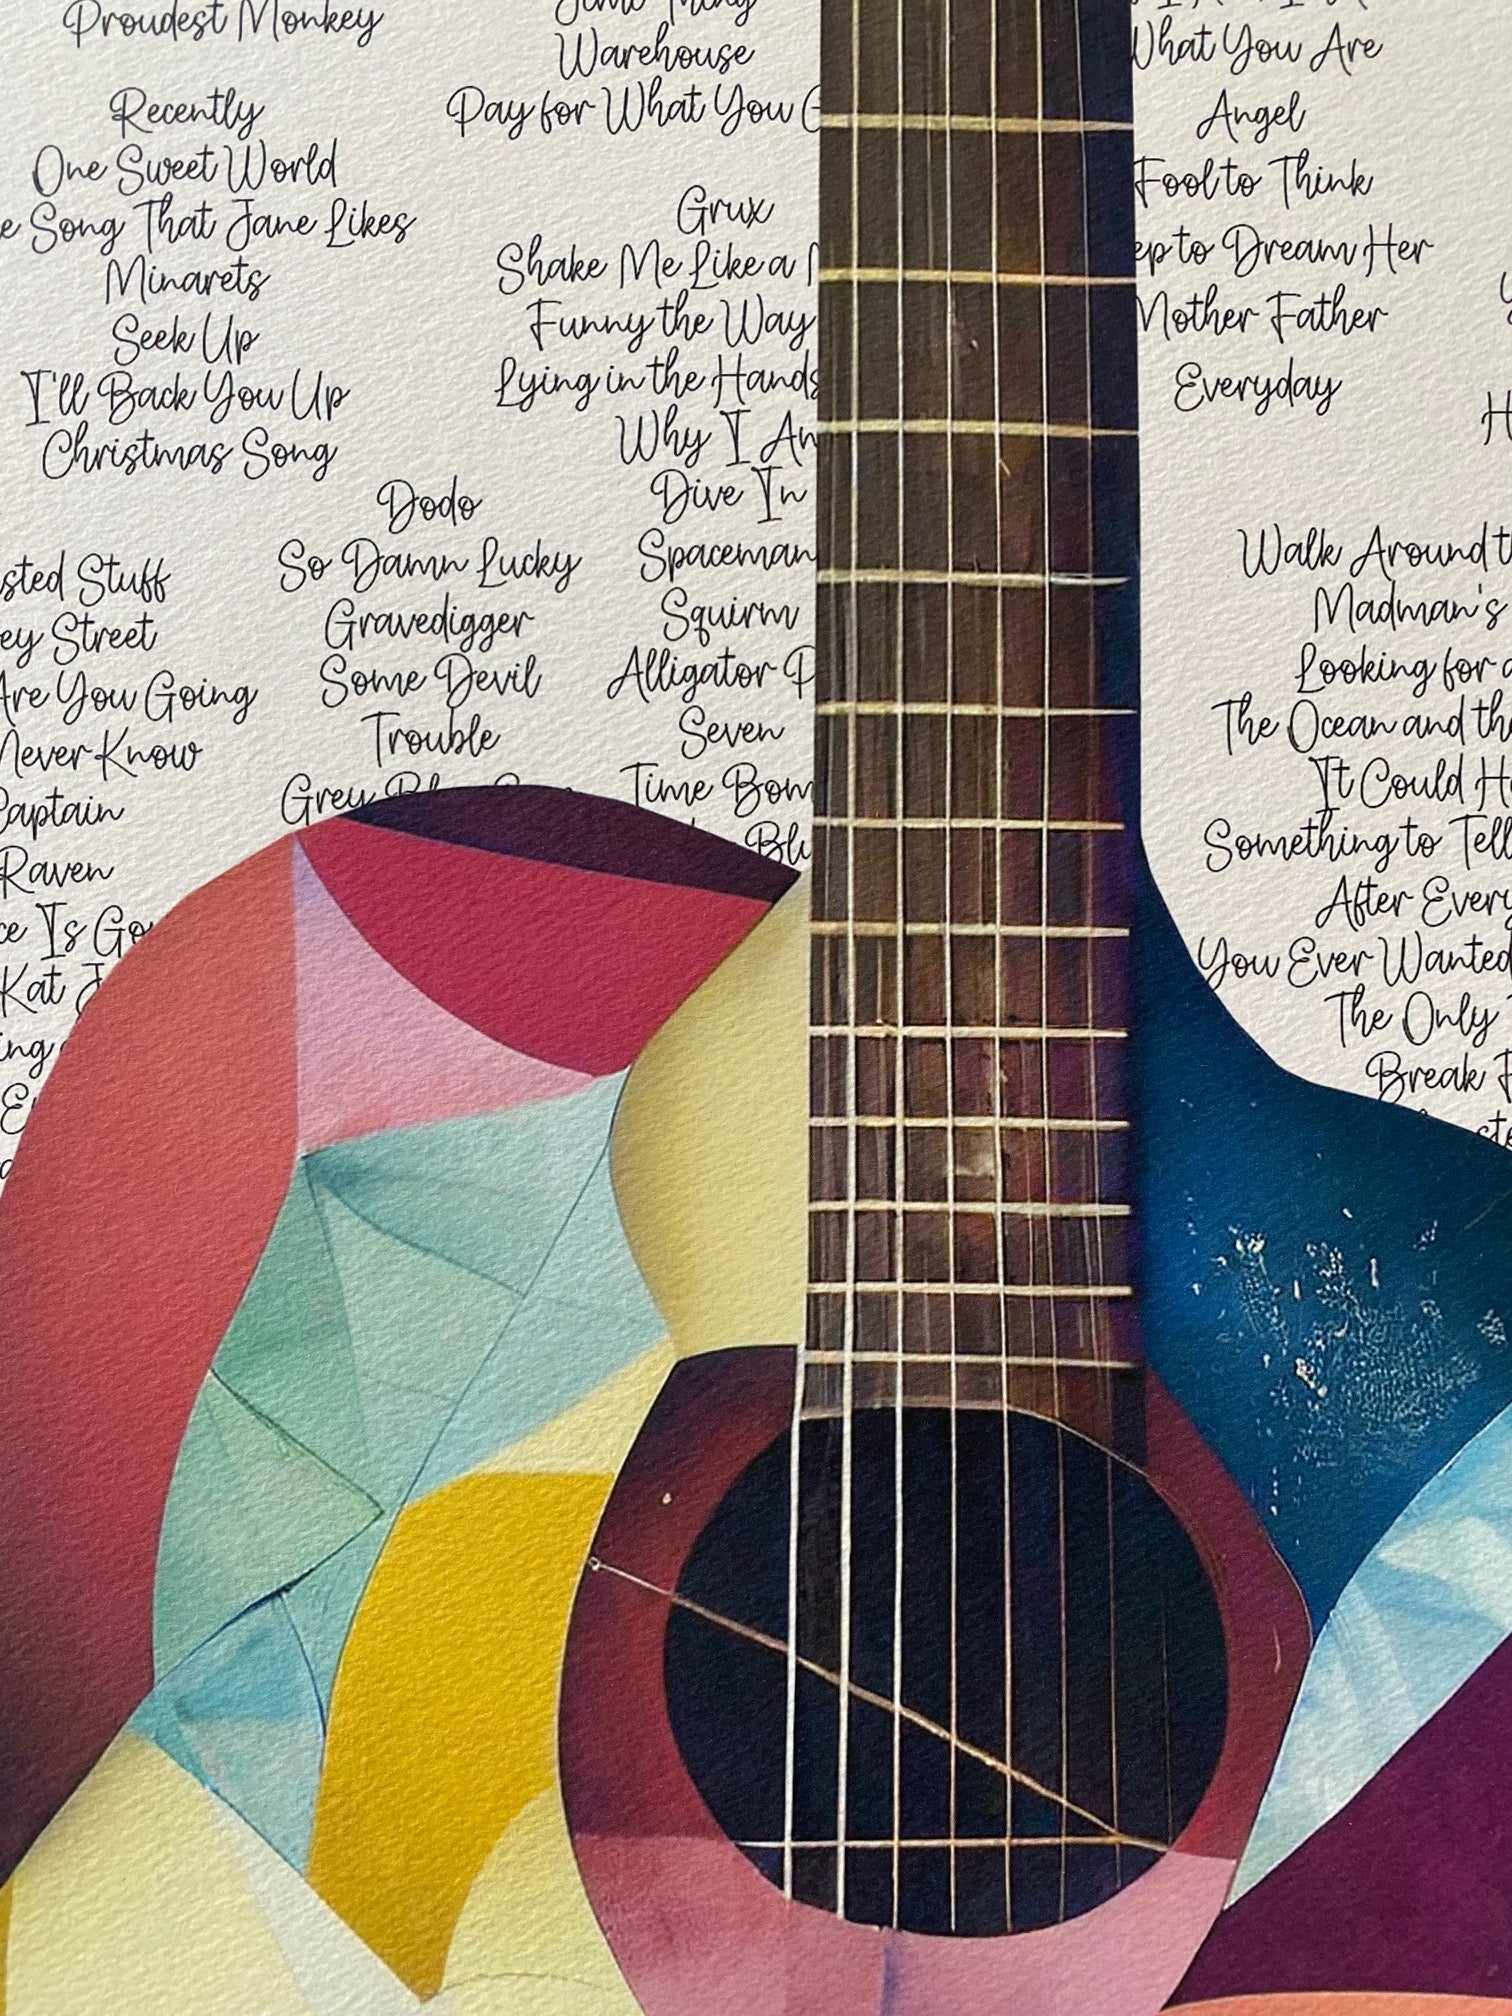 Proudest Monkey
Recently
One Sweet World
Song That Jane Likes
Minarets
Seek Up
I'll Back You Up
Christmas Song
Stuff
Street
Are You Going
Never Know
Captain
Raven
Is
Kat
Dodo
So Damn Lucky
Gravedigger
Some Devil
Trouble
Grey
Thing
Warehouse
Pay for What You
Grux
Shake Me Like a
Funny the Way
Lying in the Hands
Why I
Dive In
Spaceman
Squirm
Alligator
Seven
Time
What You Are
Angel
Fool to Think
to Dream Her
Mother Father
Everyday
Walk Around
Madman's
Looking for
The Ocean and the
It Could
Something to Tell
After Every
You Ever Wanted
The Only
Break